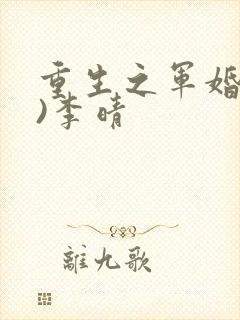 重生之军婚
)李晴
離九歌